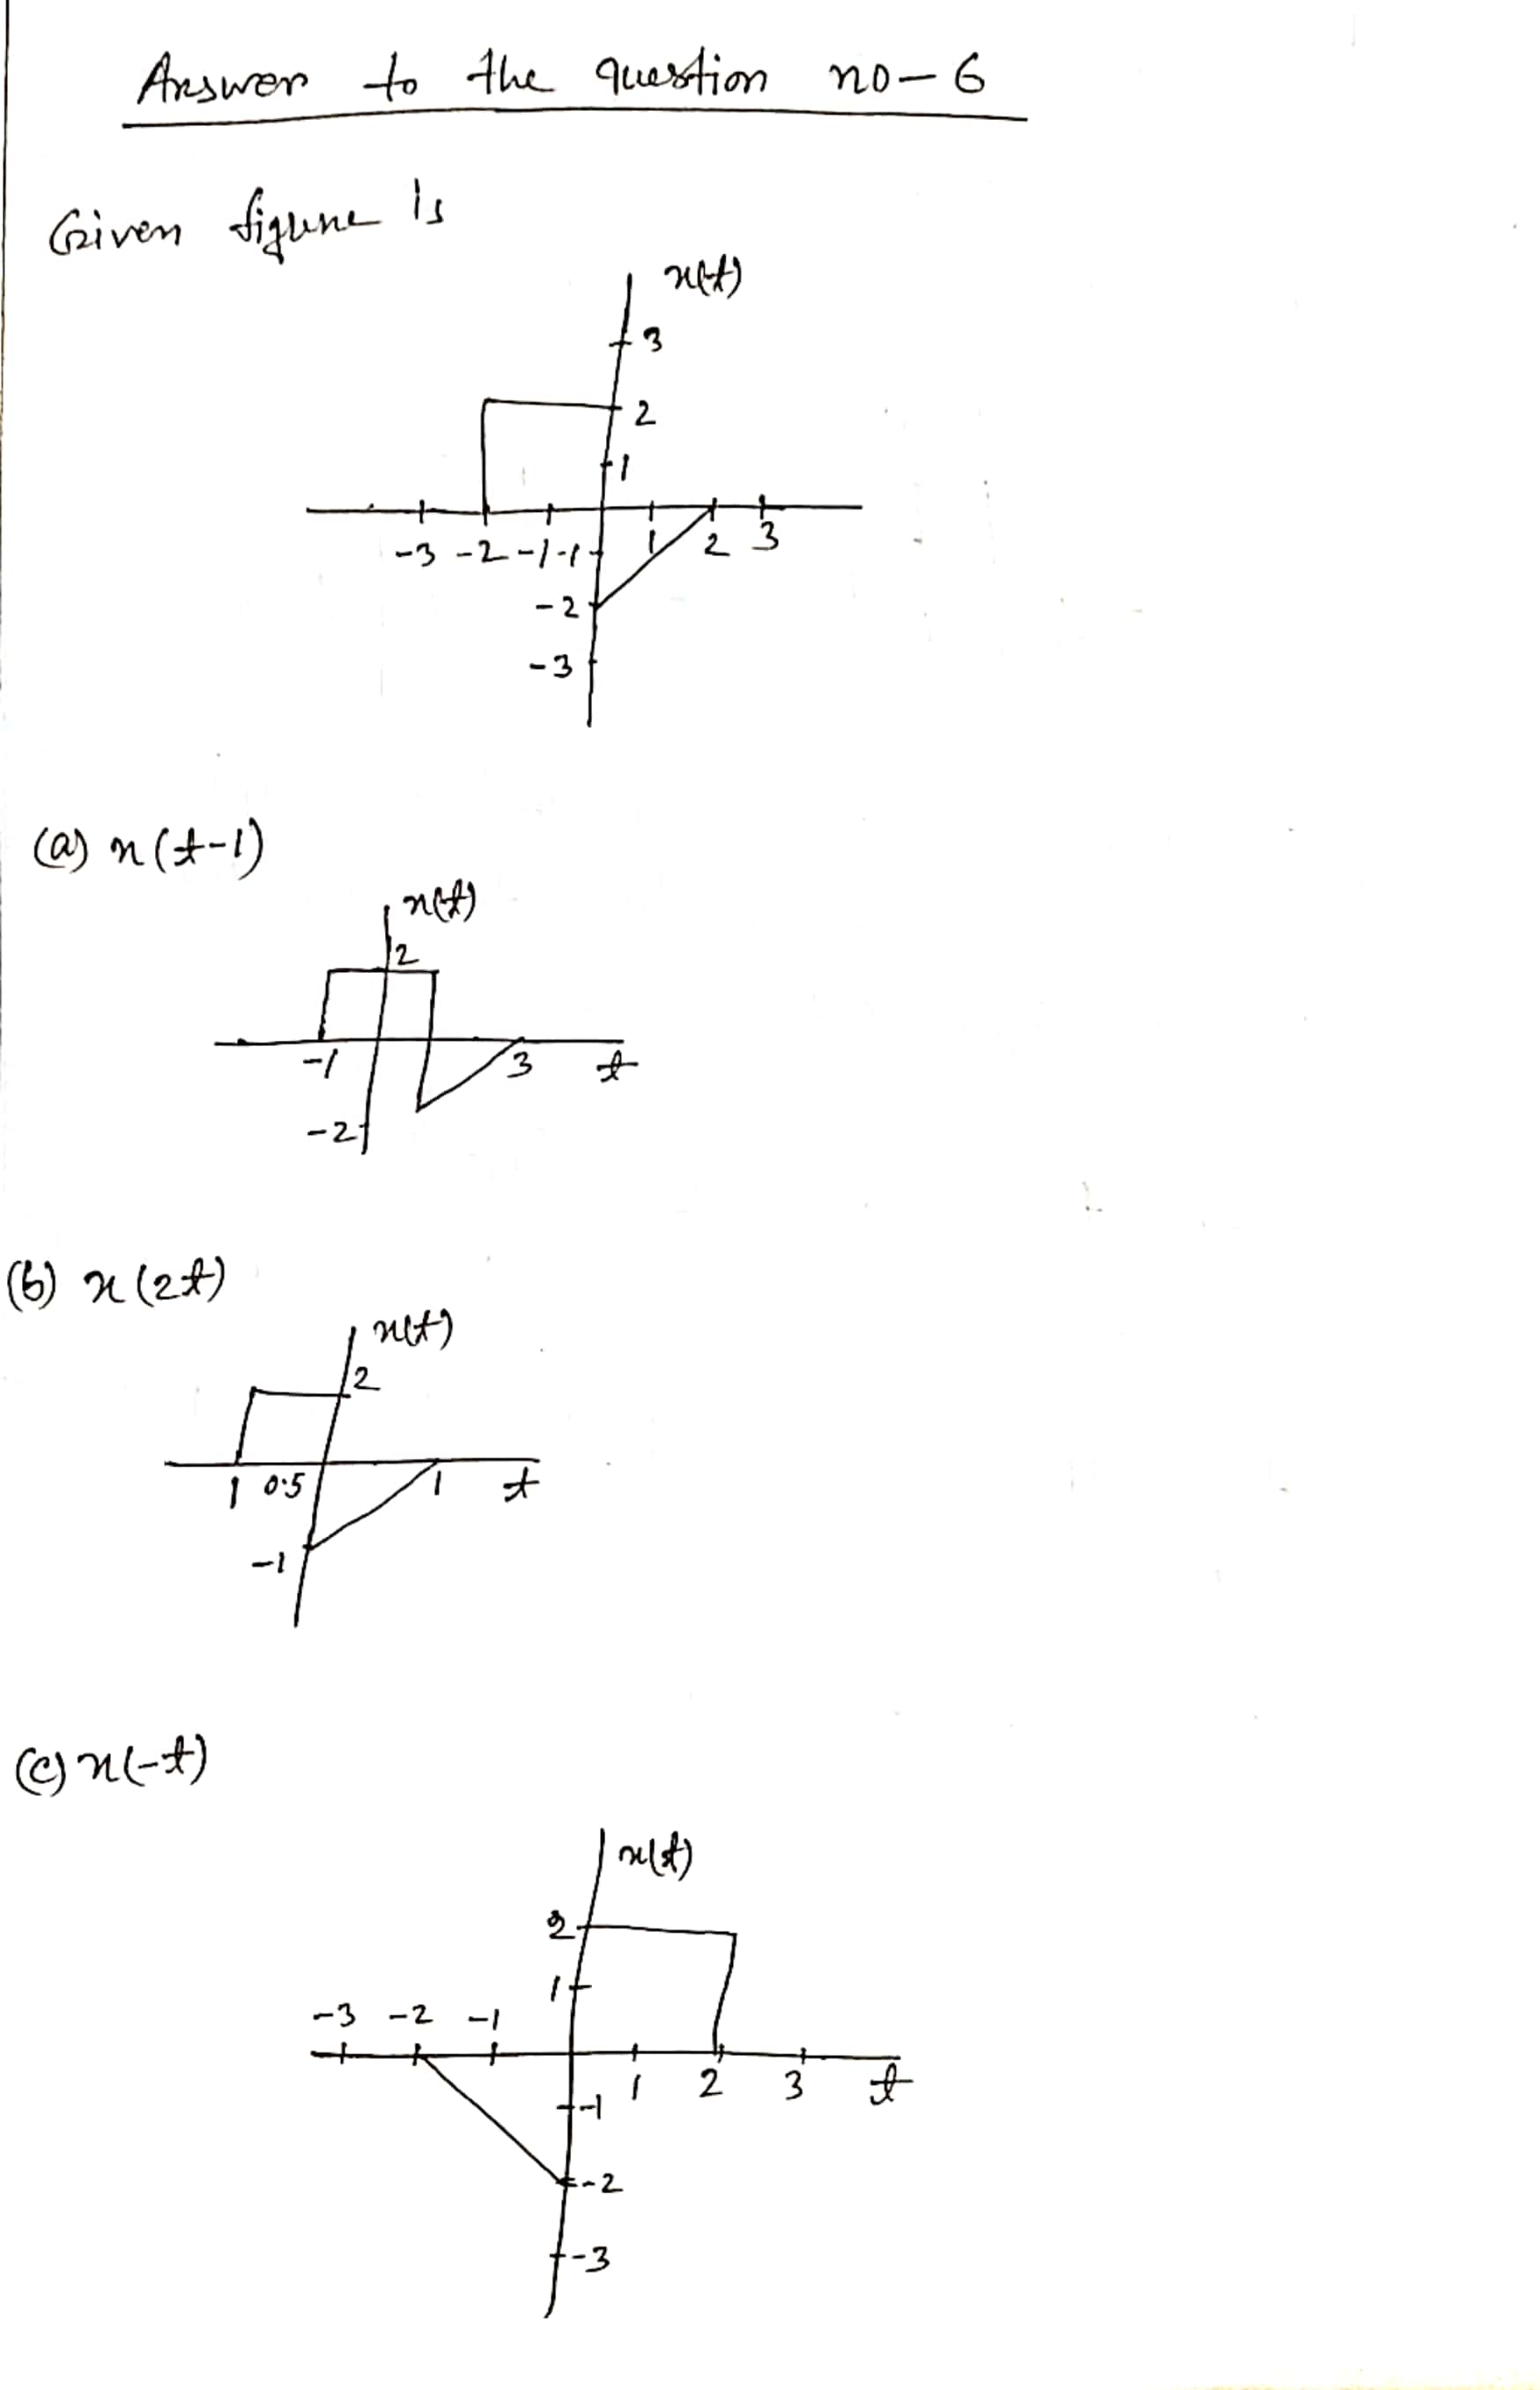 Answer to the question no-6
Given figure is
x(t)
3
2
1
-3 -2 -1 -1 1 2 3
-2
-3
(a) x(t-1)
x(t)
2
-1 3 t
-2
(b) x(2t)
x(t)
2
1 0.5 1 t
-1
(c) x(-t)
x(t)
2
1
-3 -2 -1
1 2 3 t
-1
-2
-3